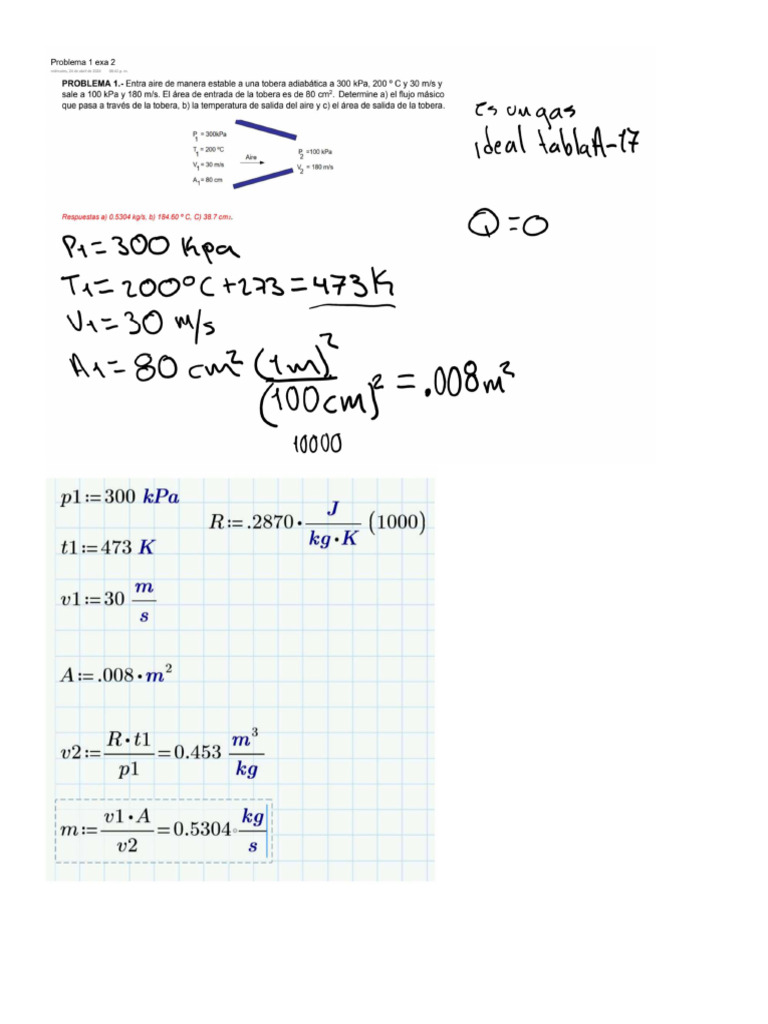 Problema 1 exa 2
PROBLEMA 1.- Entra aire de manera estable a una tobera adiabática a 300 kPa, 200 º C y 30 m/s y
sale a 100 kPa y 180 m/s. El área de entrada de la tobera es de 80 cm². Determine a) el flujo másico
que pasa a través de la tobera, b) la temperatura de salida del aire y c) el área de salida de la tobera.
Es un gas
ideal tabla A-17
P1 = 300kPa
T1 = 200 ºC
V1 = 30 m/s
A1= 80 cm
Aire
P2 =100 kPa
V2 = 180 m/s
Respuestas a) 0.5304 kg/s, b) 184.60 º C, C) 38.7 cm2.
Q=0
P1=300 Kpa
T1=200ºC+273=473K
V1=30 m/s
A1=80 cm² (1m)²/(100cm)² = .008m²
10000
p1:=300 kPa
R:=.2870·J/kg·K (1000)
t1:=473 K
v1:=30 m/s
A:=.008·m²
v2:=R·t1/p1=0.453 m³/kg
m:=v1·A/v2=0.5304 kg/s